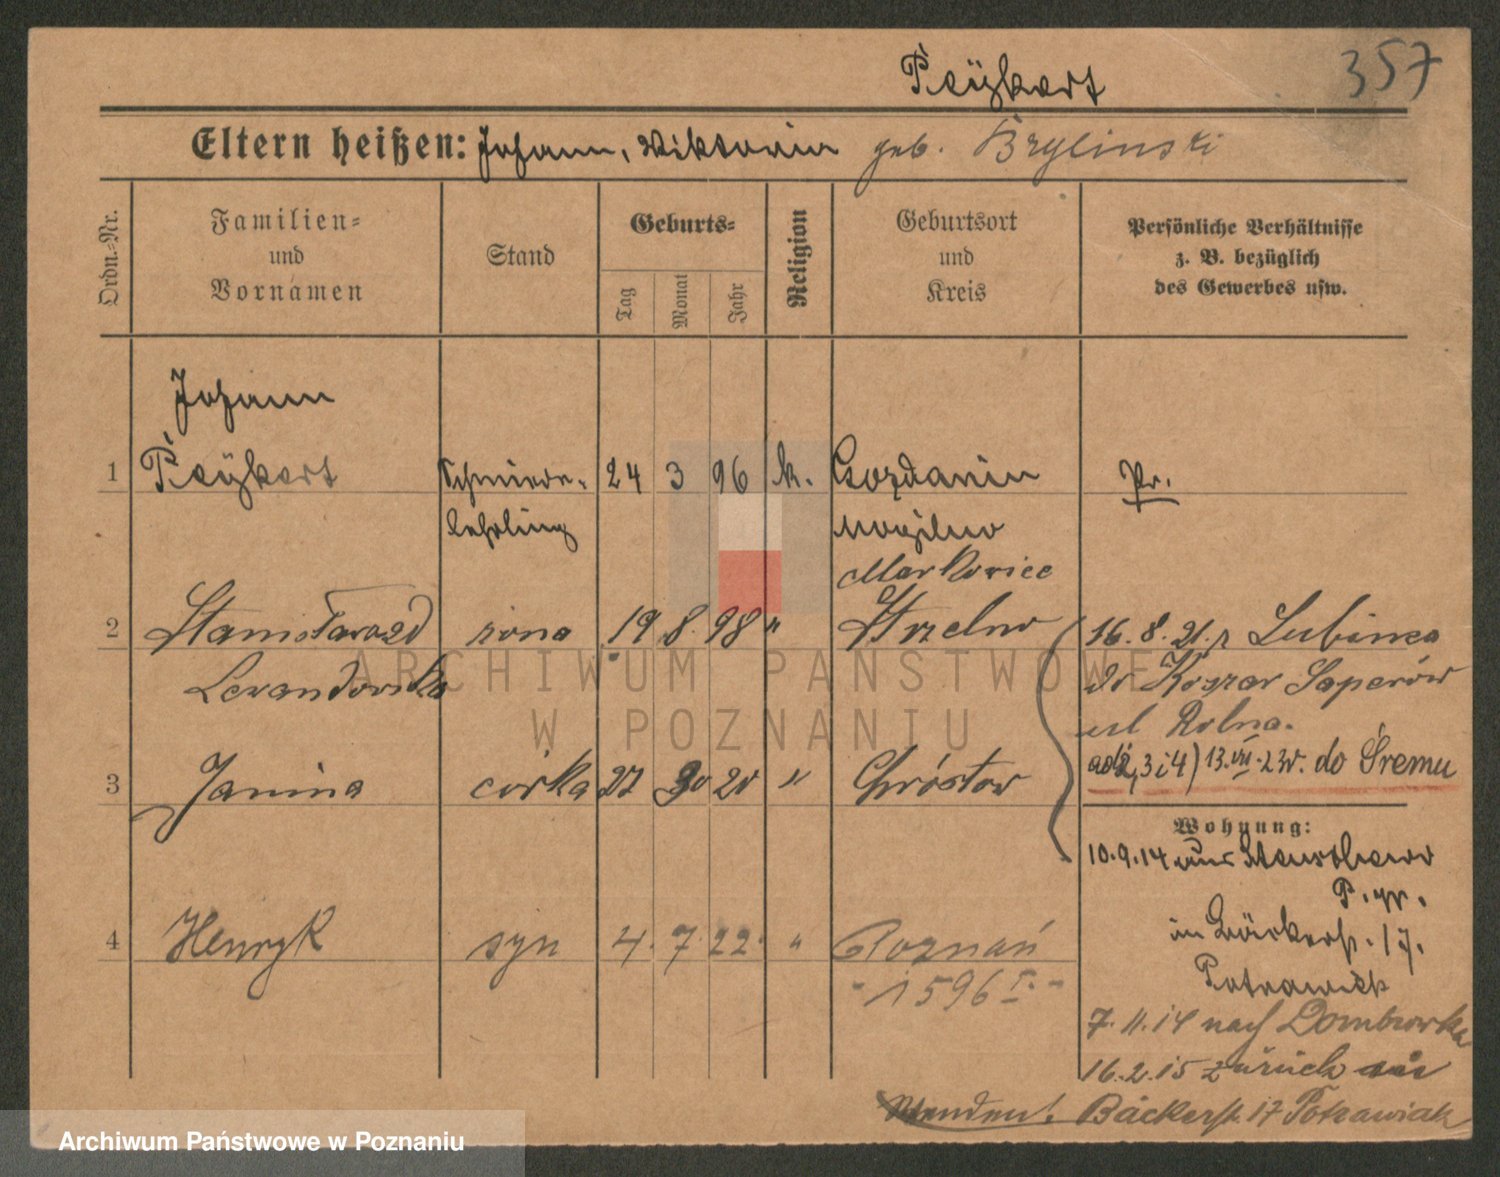 357
Peÿkert
Eltern heißen: Johann, Viktoria geb. Brylinski
Ordn.-Nr.
Familien-
und
Vornamen
Stand
Geburts-
Tag
Monat
Jahr
Religion
Geburtsort
und
Kreis
Persönliche Verhältnisse
z. B. bezüglich
des Gewerbes usw.
Johann
1 Peÿkert Schmiede- 24 3 96 k. Gozdanin Pr.
lehrling Mogilno
Markowice
2 Stanisława zd żona 19 8. 98 " Strzelno 16. 8. 21. z Lubinca
Lewandowska do Koszar Saperów
ul Rolna.
ad 2, 3 i 4) 13.VII.23r. do Śremu
3 Janina córka 27 20 "
Wohnung:
10.9.14 aus
P. gr.
in Bäckerstr. 17.
Potrawiak
4 Henryk syn 4. 7. 22. " Poznań
- 1596 I. -
7. 11. 14 nach Dombrowka
16. 2. 15 zurück
Bäckerstr. 17 Potrawiak
ARCHIWUM PAŃSTWOWE
W POZNANIU
Archiwum Państwowe w Poznaniu